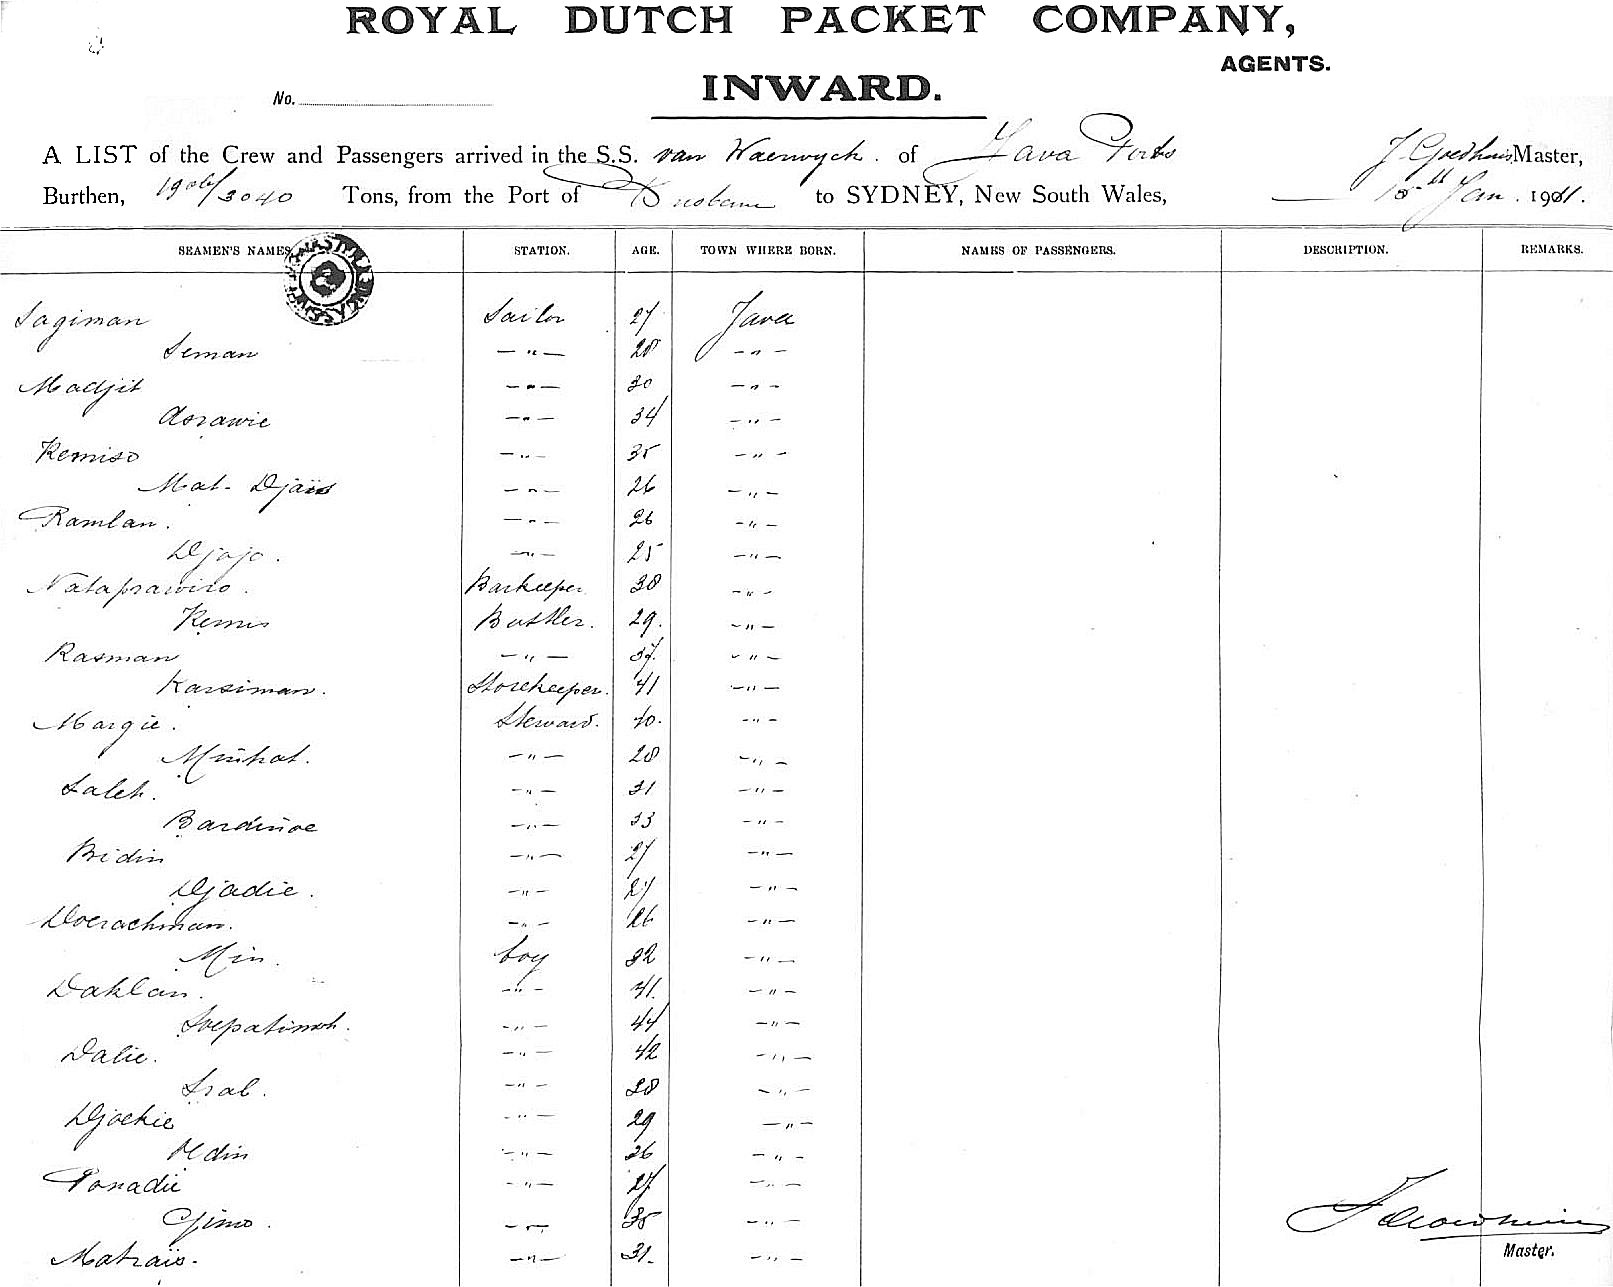 ROYAL DUTCH PACKET COMPANY,
AGENTS.
INWARD.
No.
A LIST of the Crew and Passengers arrived in the S.S. van Waerwyck. of Java Ports J Goedhuis Master,
Burthen, 1906/3040 Tons, from the Port of Brisbane to SYDNEY, New South Wales, 15th Jan. 1911.
SEAMEN'S NAMES STATION. AGE. TOWN WHERE BORN. NAMES OF PASSENGERS. DESCRIPTION. REMARKS.
Sagiman Sailor 27 Java
Seman — " — 28 — " —
Madjit — " — 30 — " —
Asrawie — " — 34 — " —
Kemiso — " — 35 — " —
Mat- Djais — " — 26 — " —
Ramlan. — " — 26 — " —
Djojo. — " — 25 — " —
Nataprawiro. Barkeeper 38 — " —
Kemis Buttler. 29. — " —
Rasman — " — 37. — " —
Karsiman. Storekeeper. 41 — " —
Margie. Steward. 40. — " —
Minhat. — " — 28 — " —
Saleh. — " — 31 — " —
Bardinoe — " — 33 — " —
Bidin — " — 27 — " —
Djadie. — " — 27 — " —
Doerachman. — " — 26 — " —
Min. boy 32 — " —
Dahlan. — " — 41. — " —
Soepatimoh. — " — 44 — " —
Dalie. — " — 42 — " —
Srab. — " — 28 — " —
Djoekie — " — 29 — " —
— " — 26 — " —
Ponadie — " — 27 — " —
Gimo. — " — 35 — " —
Matrais. — " — 31. — " —
J Goedhuis
Master.